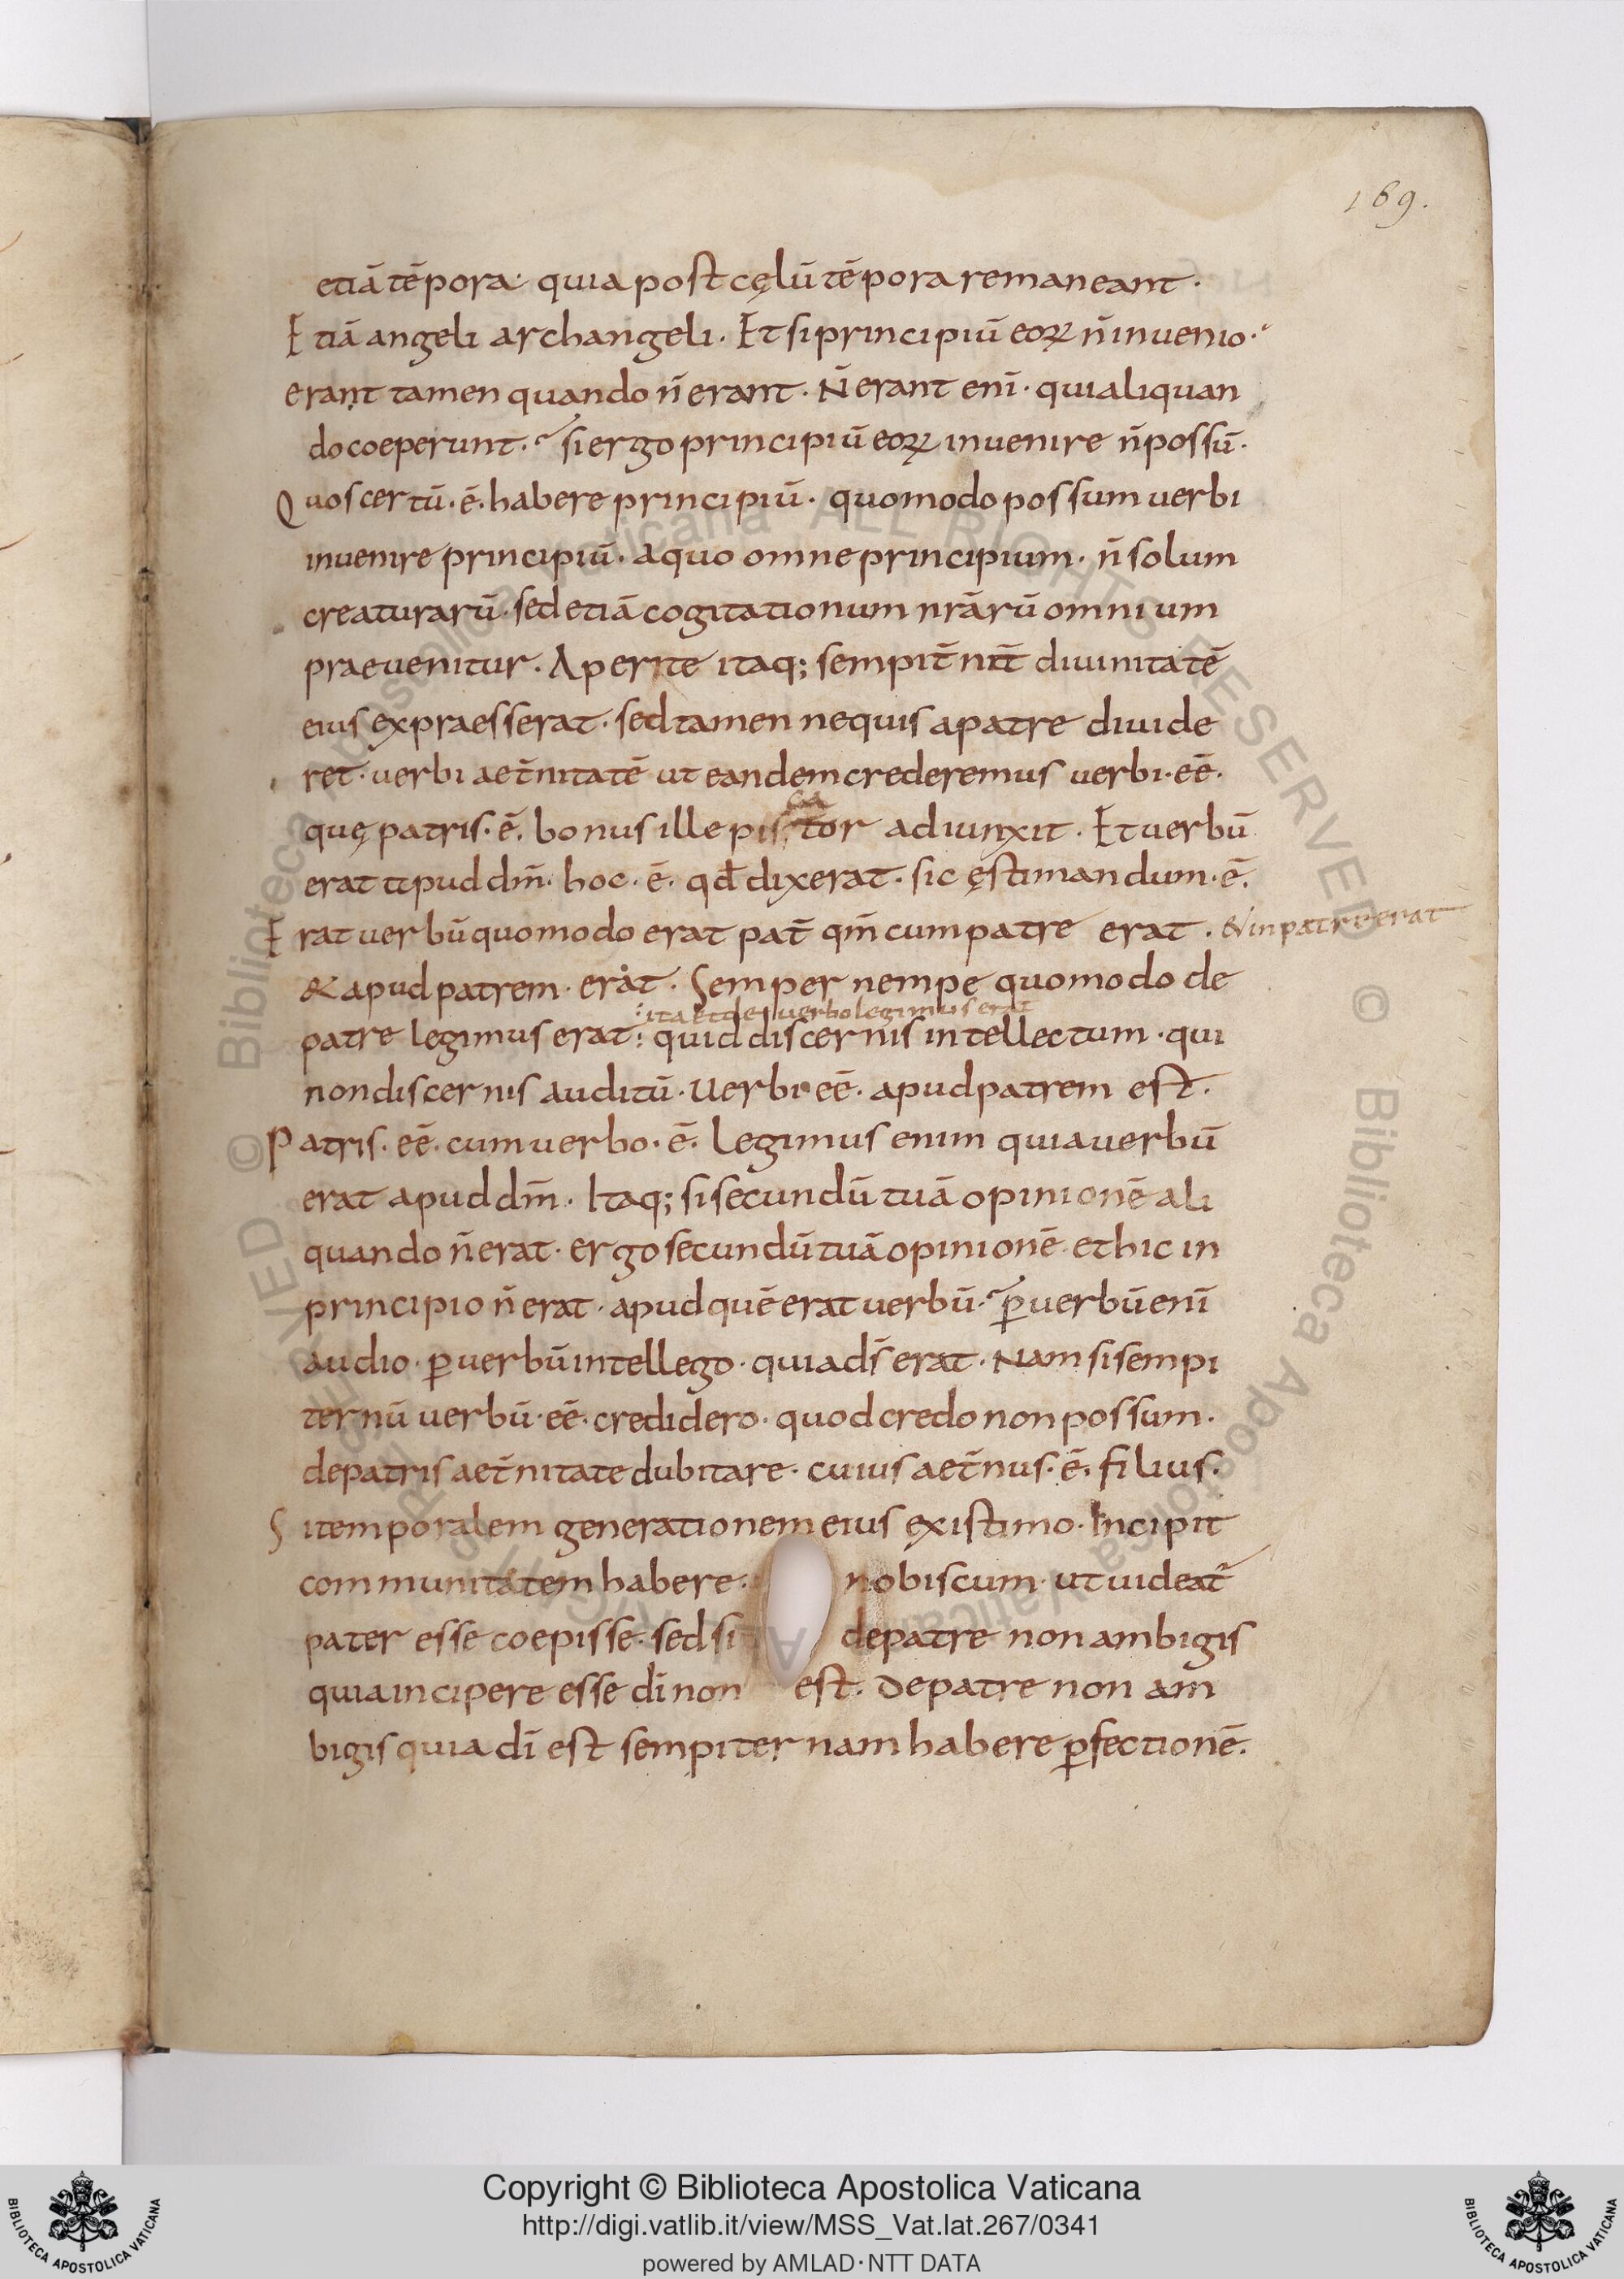 169.
etiā tēpora· quia post cęlū tēpora remaneant·
Etiā angeli archangeli. Et si principiū eoꝝ n̄ inuenio·
erant tamen quando n̄ erant· N̄ erant enī· qui aliquan
do coeperunt· si ergo principiū eoꝝ inuenire n̄ possū·
Quos certū·ē· habere principiū· quomodo possum uerbi
inuenire principiū· a quo omne principium· n̄ solum
creaturarū· sed etiā cogitationum nrārū omnium
praeuenitur. Aperite itaq; sempit̄nit̄ diuinitatē
eius expraesserat· sed tamen nequis a patre diuide
ret· uerbi aet̄nitatē ut eandem crederemus uerbi·eē·
quę patris·ē· bonus ille piscator adiunxit. Et uerbū
erat apud dm̄· hoc·ē· qđ dixerat· sic ęstimandum·ē·
Erat uerbū quomodo erat pat̄ qm̄ cum patre erat. & in patre erat
& apud patrem· erat. Semper nempe quomodo de
patre legimus erat: ita et de uerbo legimus erat quid discernis intellectum· qui
non discernis auditū· Uerbi eē· apud patrem est·
Patris· eē· cum uerbo·ē· Legimus enim quia uerbū
erat apud dm̄· Itaq; si secundū tuā opinionē ali
quando n̄ erat· ergo secundū tuā opinionē· et hic in
principio n̄ erat· apud quē erat uerbū· ꝑ uerbū enī
audio· ꝑ uerbū intellego· quia ds̄ erat· Nam si sempi
ternū uerbū·eē· credidero· quod credo non possum·
de patris aet̄nitate dubitare· cuius aet̄nus·ē· filius·
Si temporalem generationem eius existimo· Incipit
communitatem habere· nobiscum· ut uideat̄
pater esse coepisse· sed si de patre non ambigis
quia incipere esse dī non est. De patre non am
bigis quia dī est sempiternam habere ꝑfectionē.
Copyright © Biblioteca Apostolica Vaticana
http://digi.vatlib.it/view/MSS_Vat.lat.267/0341
powered by AMLAD·NTT DATA
BIBLIOTECA APOSTOLICA VATICANA
BIBLIOTECA APOSTOLICA VATICANA